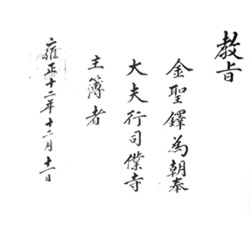 教旨
金聖鐸為朝奉
大夫行司僕寺
主簿者
雍正十二年十二月十一日